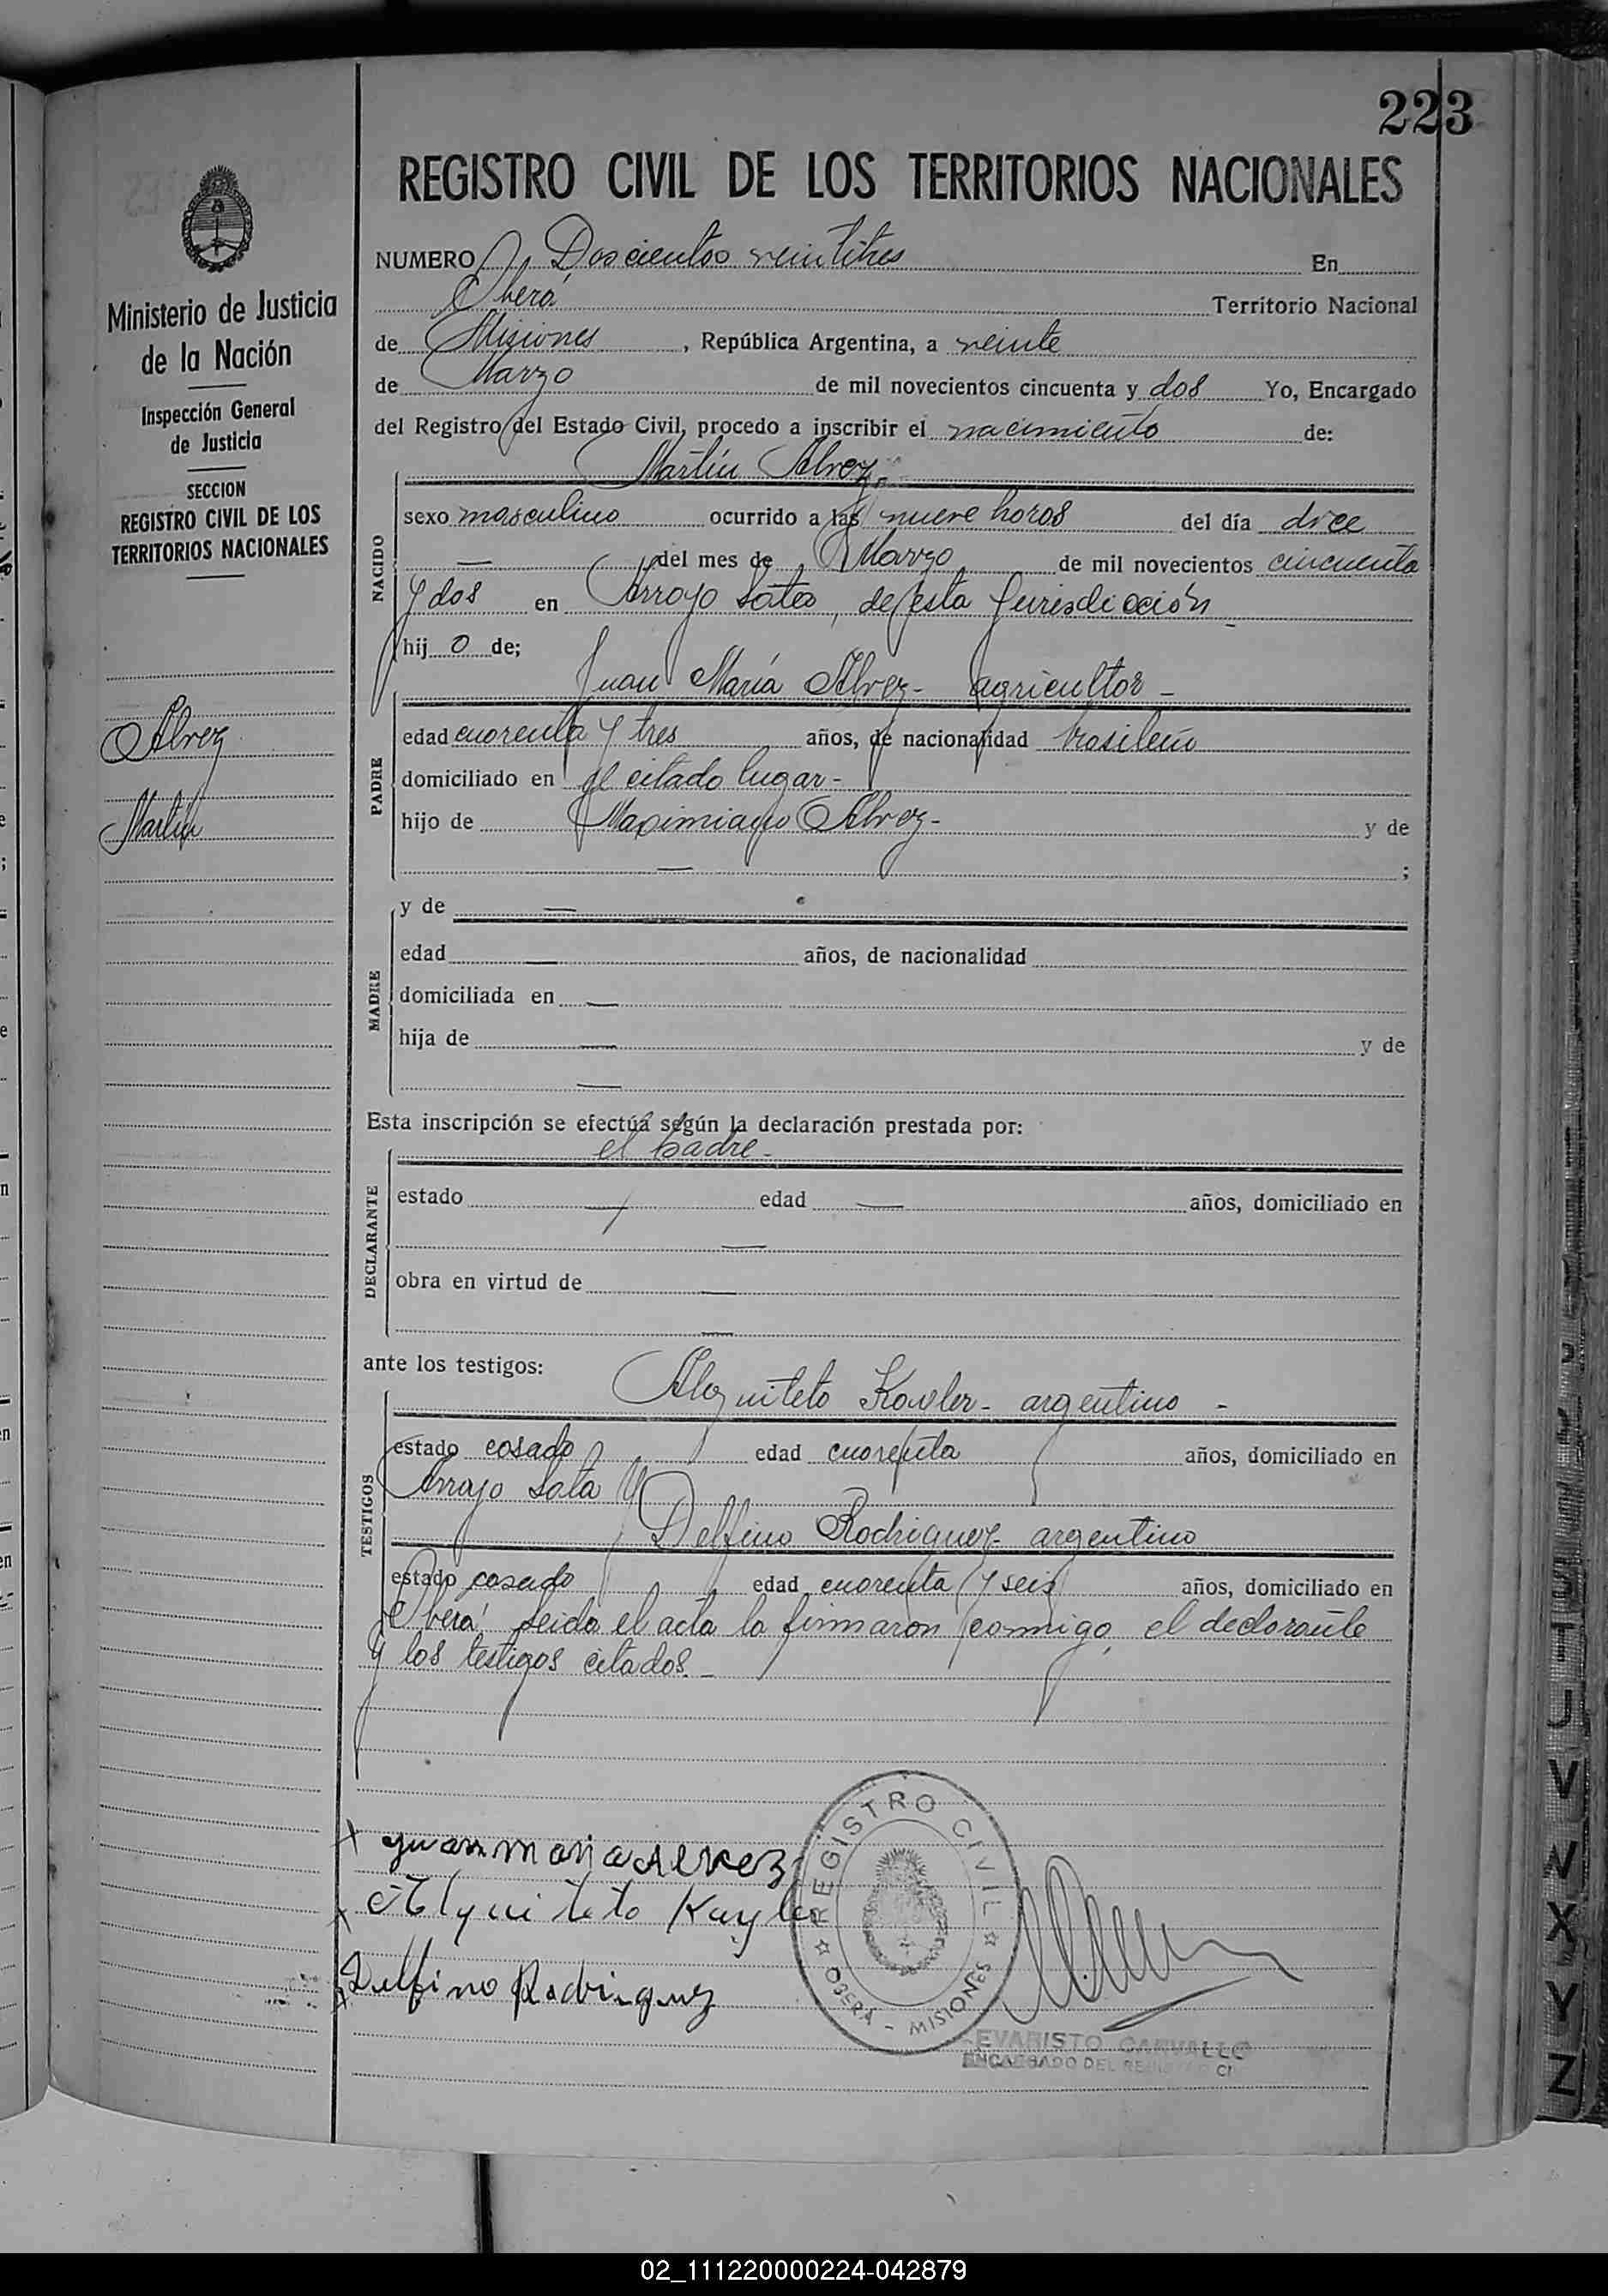 223
REGISTRO CIVIL DE LOS TERRITORIOS NACIONALES
Ministerio de Justicia
de la Nación
Inspección General
de Justicia
SECCION
REGISTRO CIVIL DE LOS
TERRITORIOS NACIONALES
Alvez
Martin
NUMERO Doscientos veintitres En
Oberá Territorio Nacional
de Misiones, República Argentina, a veinte
de Marzo de mil novecientos cincuenta y dos Yo, Encargado
del Registro del Estado Civil, procedo a inscribir el nacimiento de:
Martín Alvez.-
NACIDO
sexo masculino ocurrido a las nueve horas del día doce
— del mes de Marzo de mil novecientos cincuenta
y dos en Arroyo de esta Jurisdicción
hij o de;
Juan María Alvez- agricultor -
PADRE
edad cuarenta y tres años, de nacionalidad brasileño
domiciliado en el citado lugar-
hijo de Maximiano Alvez- y de
— ;
MADRE
y de —
edad — años, de nacionalidad
domiciliada en —
hija de — y de
—
Esta inscripción se efectúa según la declaración prestada por:
el padre.
DECLARANTE
estado — edad — años, domiciliado en
—
obra en virtud de —
—
ante los testigos:
argentino -
TESTIGOS
estado casado edad cuarenta años, domiciliado en
Arroyo y
Delfino Rodriguez- argentino
estado casado edad cuarenta y seis años, domiciliado en
Oberá. Leida el acta la firmaron conmigo, el declarante
y los testigos citados.-
x Juan maria alvez
x
x Delfino Rodriguez
REGISTRO CIVIL
OBERÁ - MISIONES
EVARISTO CARVALLO
ENCARGADO DEL REGISTRO CI
J
V
W
X
Y
Z
02_111220000224-042879